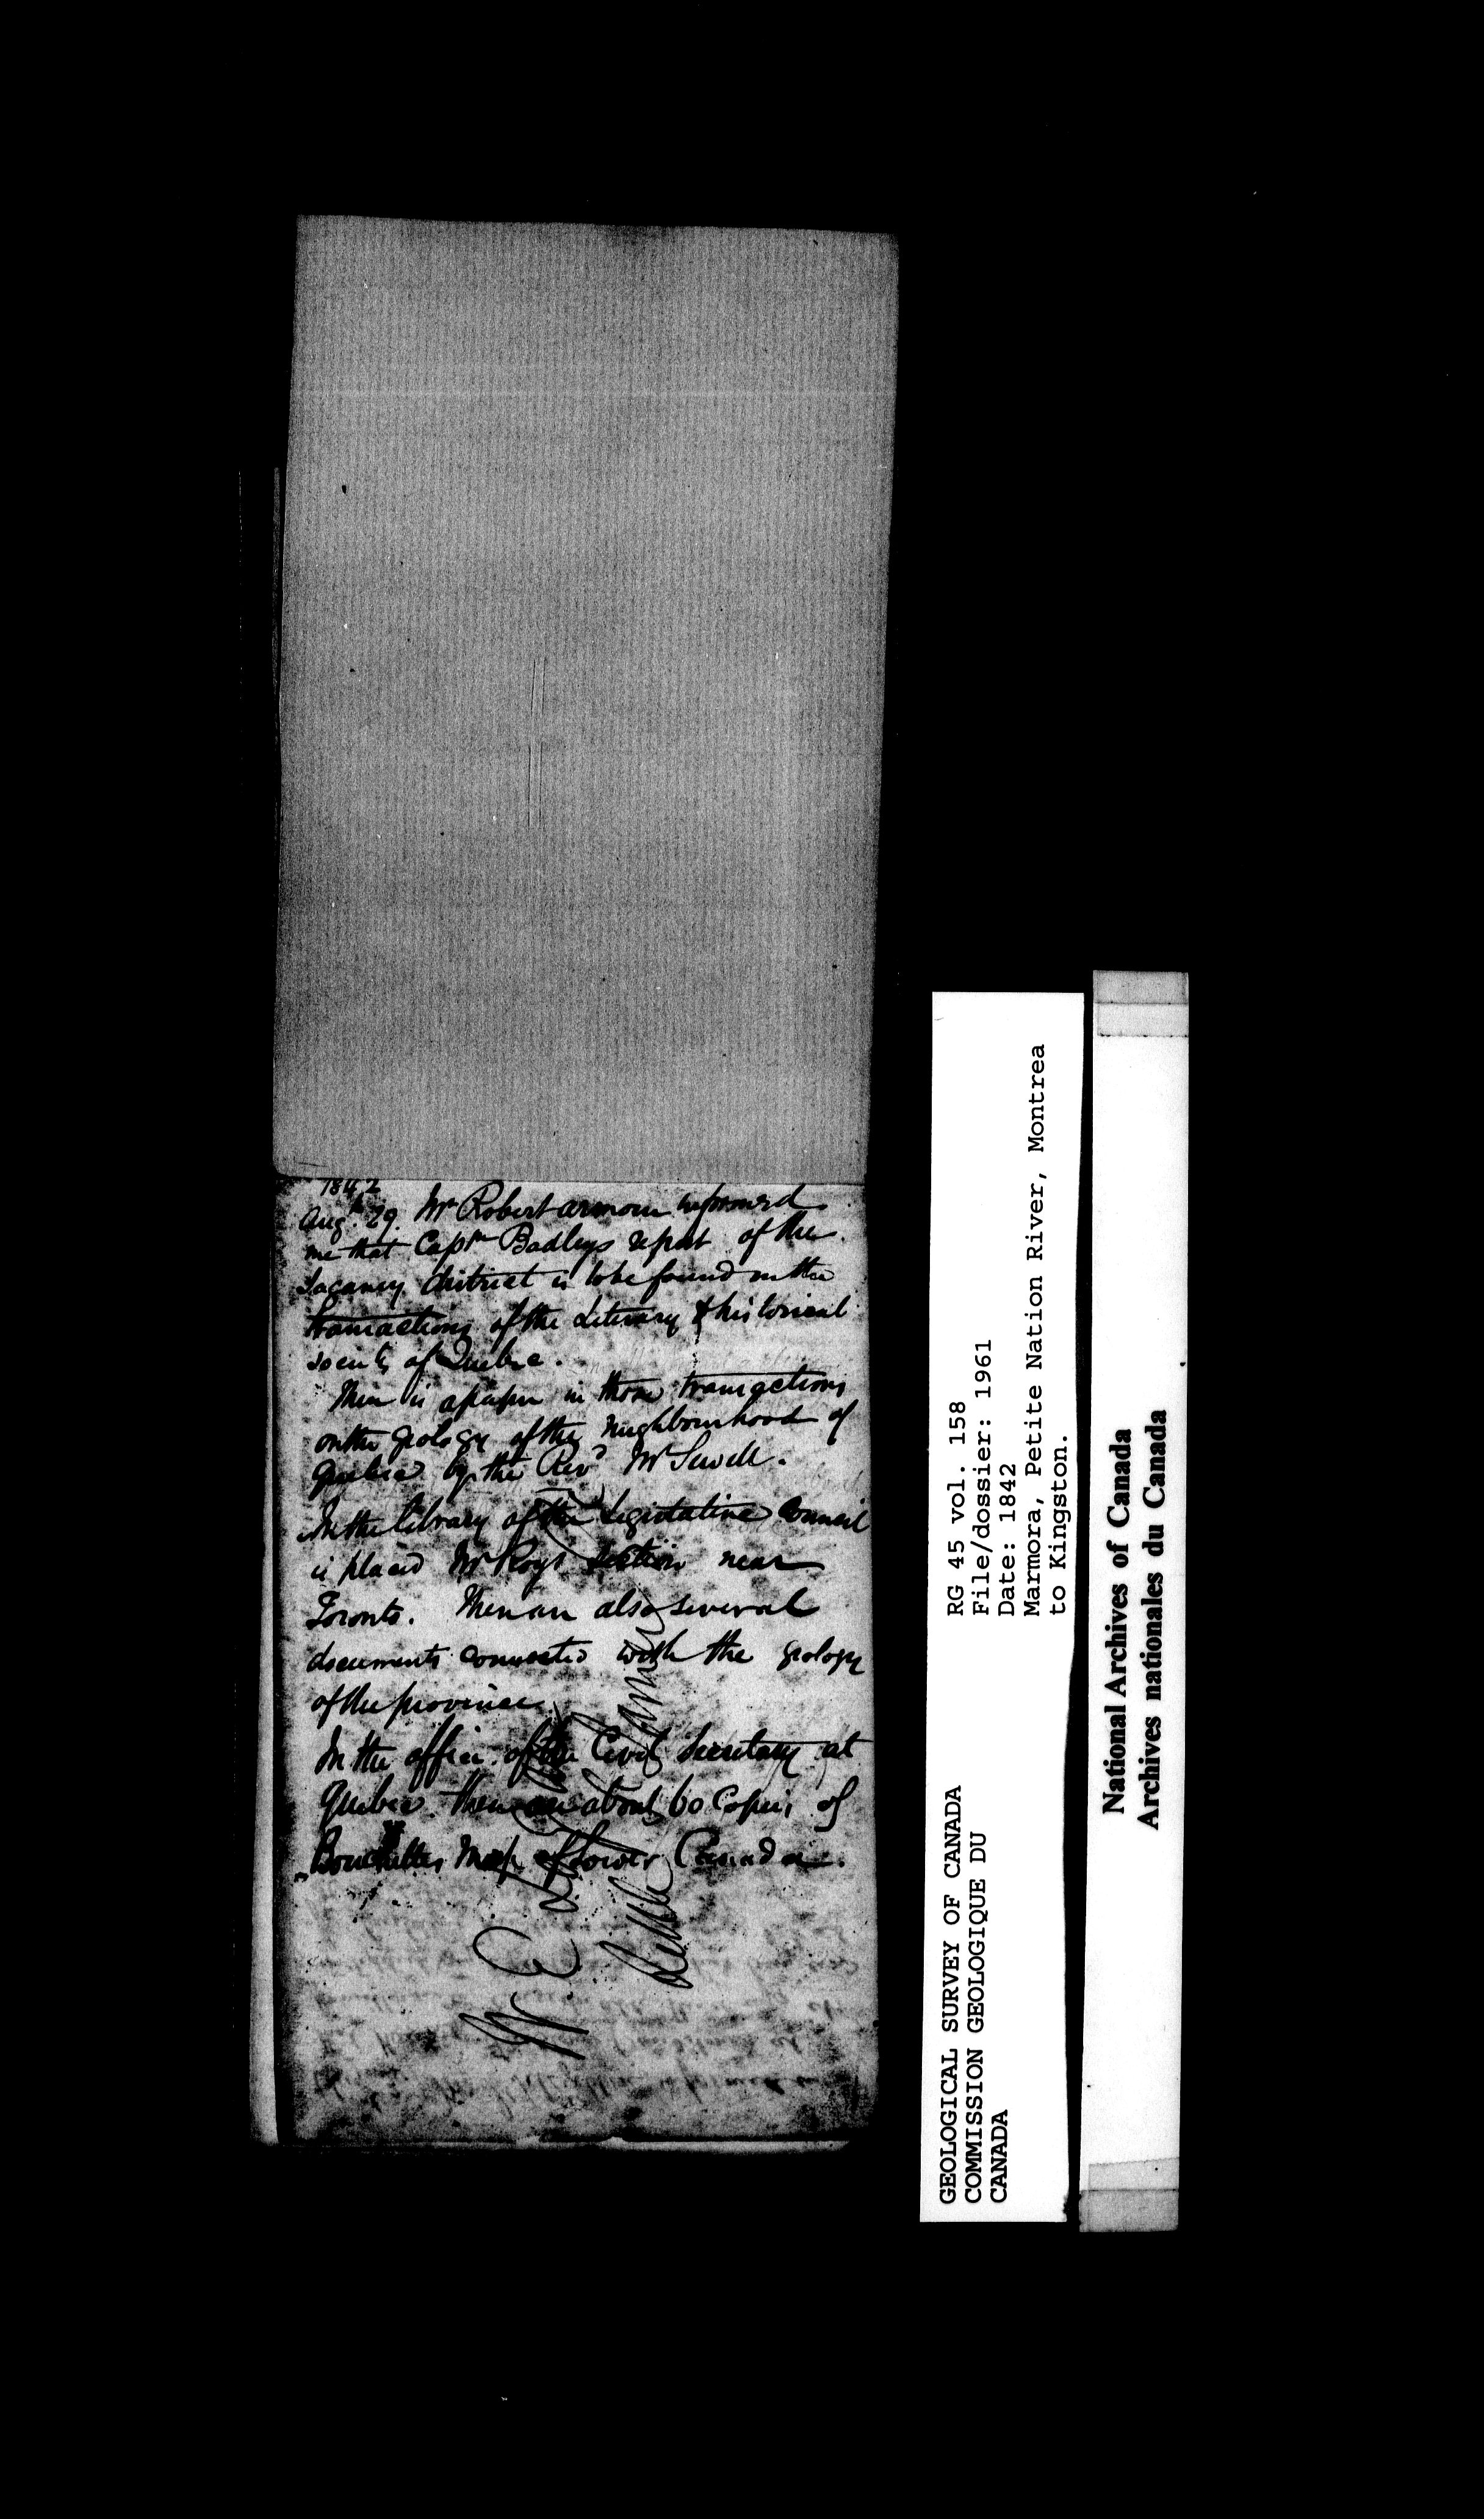 1842
Augt. 29. Mr Robert Armour informed
me that Captn Badleys report of the
Saganey district is to be found in the
transactions of the Literary & historical
society of Quebec.
There is a paper in those transactions
on the geology of the neighbourhood of
Quebec by the Revd Mr Sewell.
In the library of the Legislative Council
is placed Mr Roys section near
Toronto. There are also several
documents connected with the geology
of the province
In the office of the Civil Secretary at
Quebec there are about 60 Copies of
Bouchettes Map of Lower Canada.
W E Logan
GEOLOGICAL SURVEY OF CANADA
COMMISSION GEOLOGIQUE DU
CANADA
RG 45 vol. 158
File/dossier: 1961
Date: 1842
Marmora, Petite Nation River, Montrea
to Kingston.
National Archives of Canada
Archives nationales du Canada